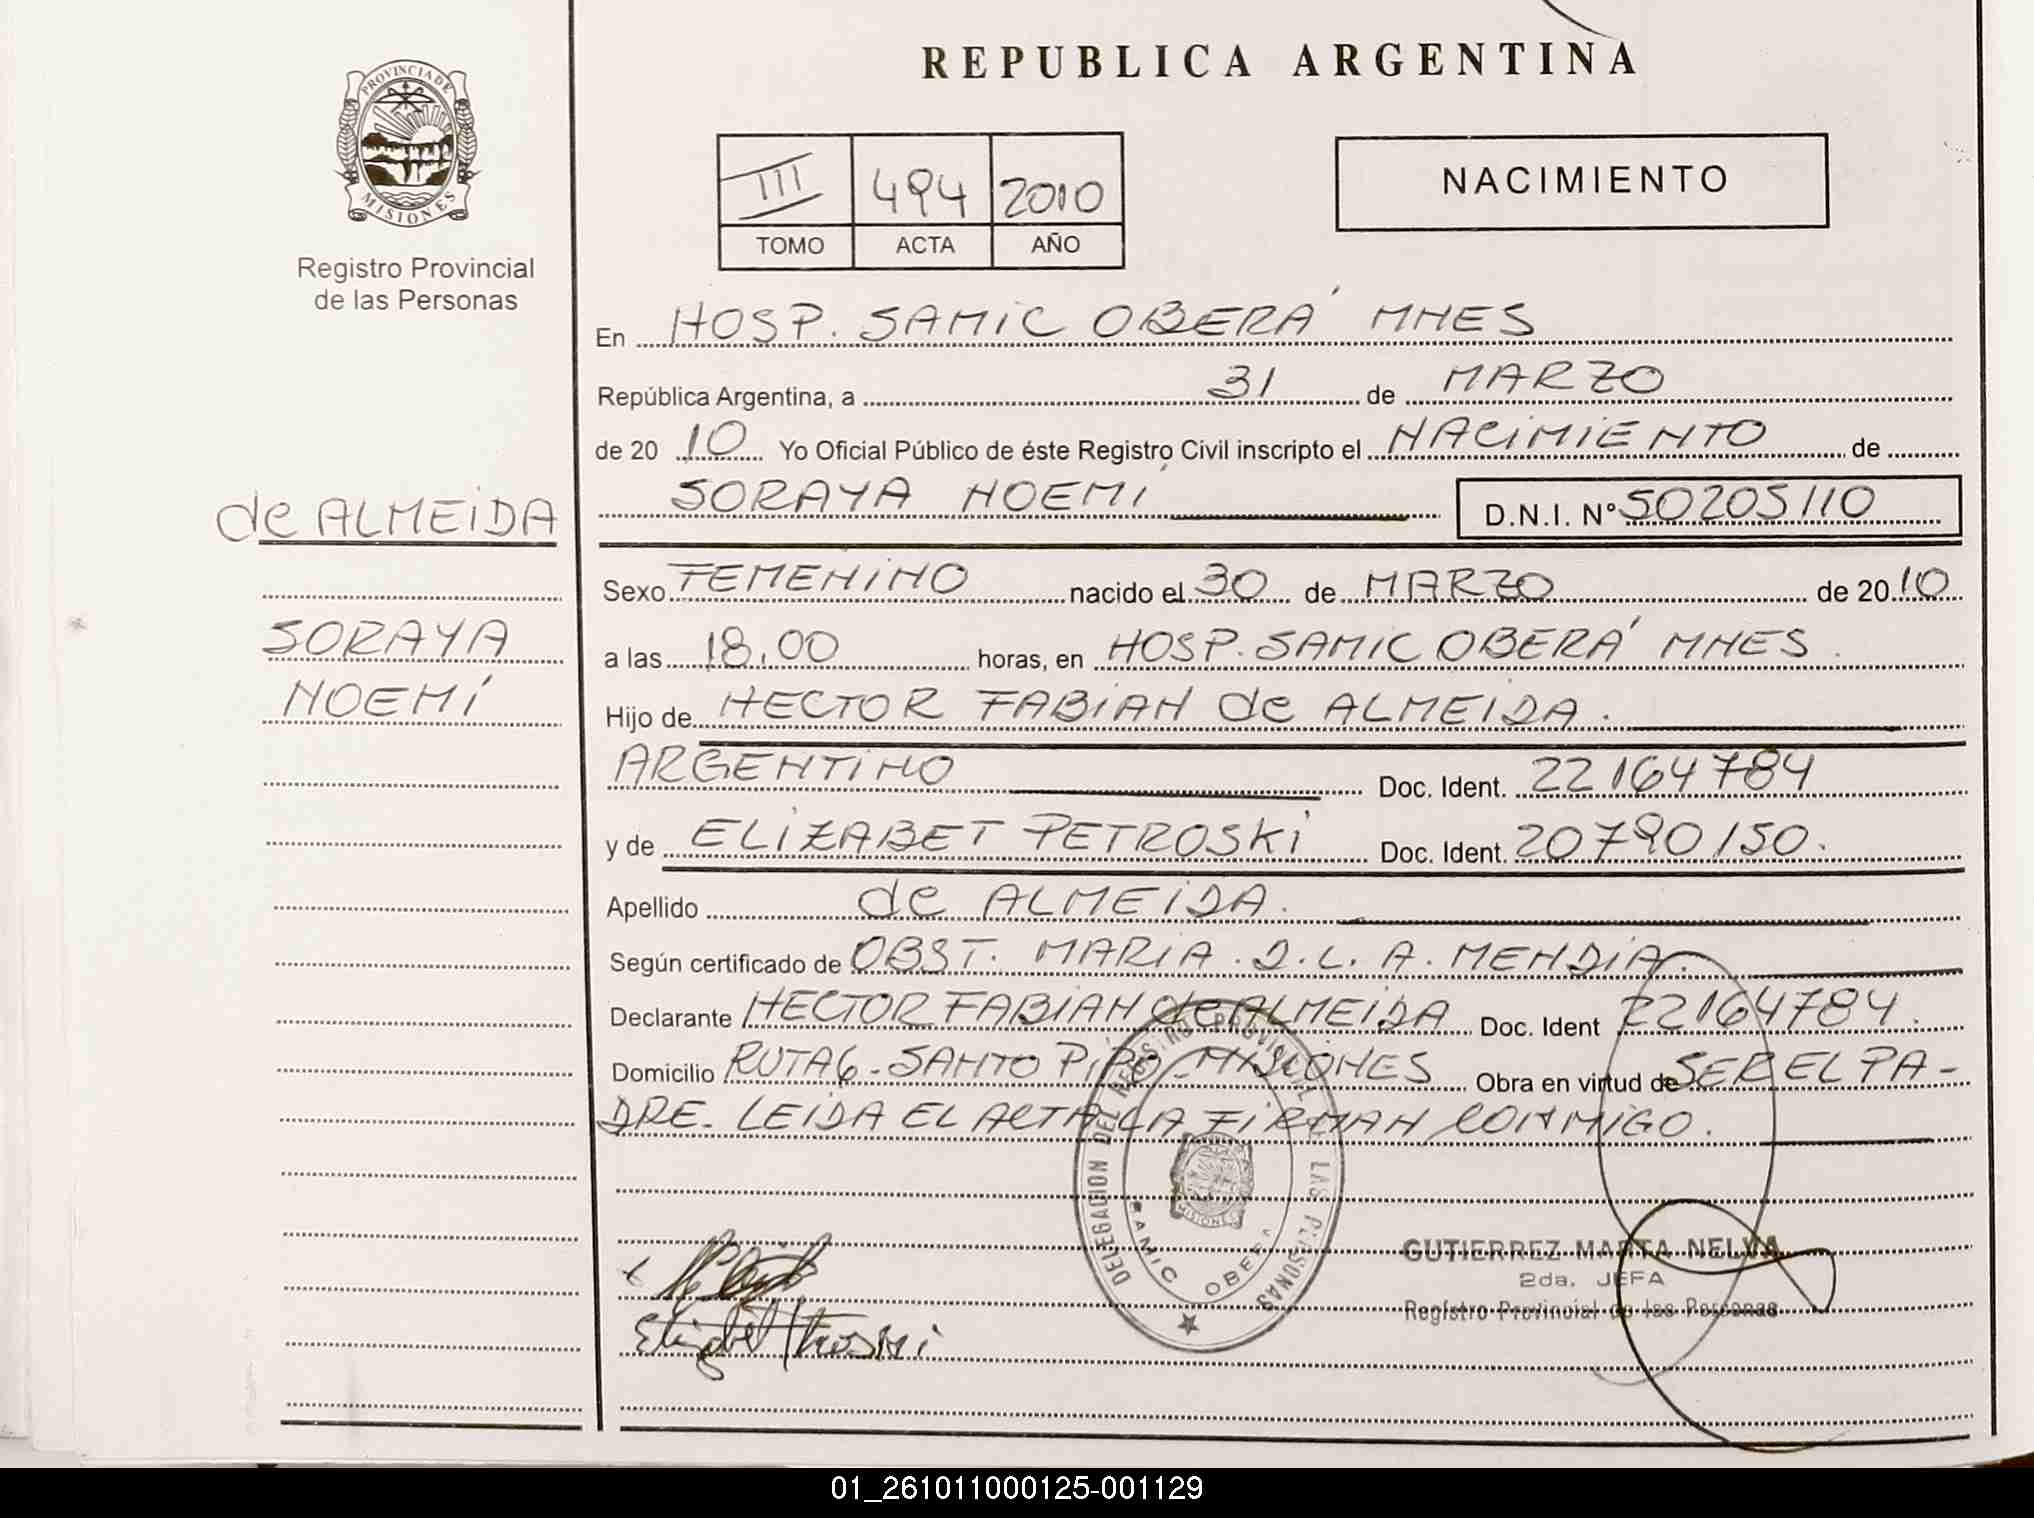 REPUBLICA ARGENTINA
PROVINCIA DE
MISIONES
Registro Provincial
de las Personas
III 494 2010
TOMO ACTA AÑO
NACIMIENTO
En HOSP. SAMIC OBERÁ MNES
República Argentina, a 31 de MARZO
de 20 10 Yo Oficial Público de éste Registro Civil inscripto el NACIMIENTO de
SORAYA NOEMÍ D.N.I. N° 50205110
de ALMEIDA
SORAYA
NOEMÍ
Sexo FEMENINO nacido el 30 de MARZO de 20 10
a las 18,00 horas, en HOSP. SAMIC OBERÁ MNES.
Hijo de HECTOR FABIAN de ALMEIDA.
ARGENTINO Doc. Ident. 22164784
y de ELIZABET PETROSKI Doc. Ident. 20790150.
Apellido de ALMEIDA.
Según certificado de OBST. MARIA. D. L. A. MENDIA.
Declarante HECTOR FABIAN de ALMEIDA Doc. Ident 22164784.
Domicilio RUTA 6 - SANTO PIPO - MISIONES Obra en virtud de SER EL PA-
DRE. LEIDA EL ACTA LA FIRMAN CONMIGO.
DELEGACION DEL REGISTRO PROVINCIAL DE LAS PERSONAS
SAMIC OBERA
MISIONES
GUTIERREZ MARTA NELVA
2da. JEFA
Registro Provincial de las Personas
01_261011000125-001129